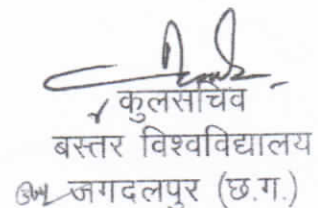 कुलसचिव
बस्तर विश्वविद्यालय
जगदलपुर (छ.ग.)